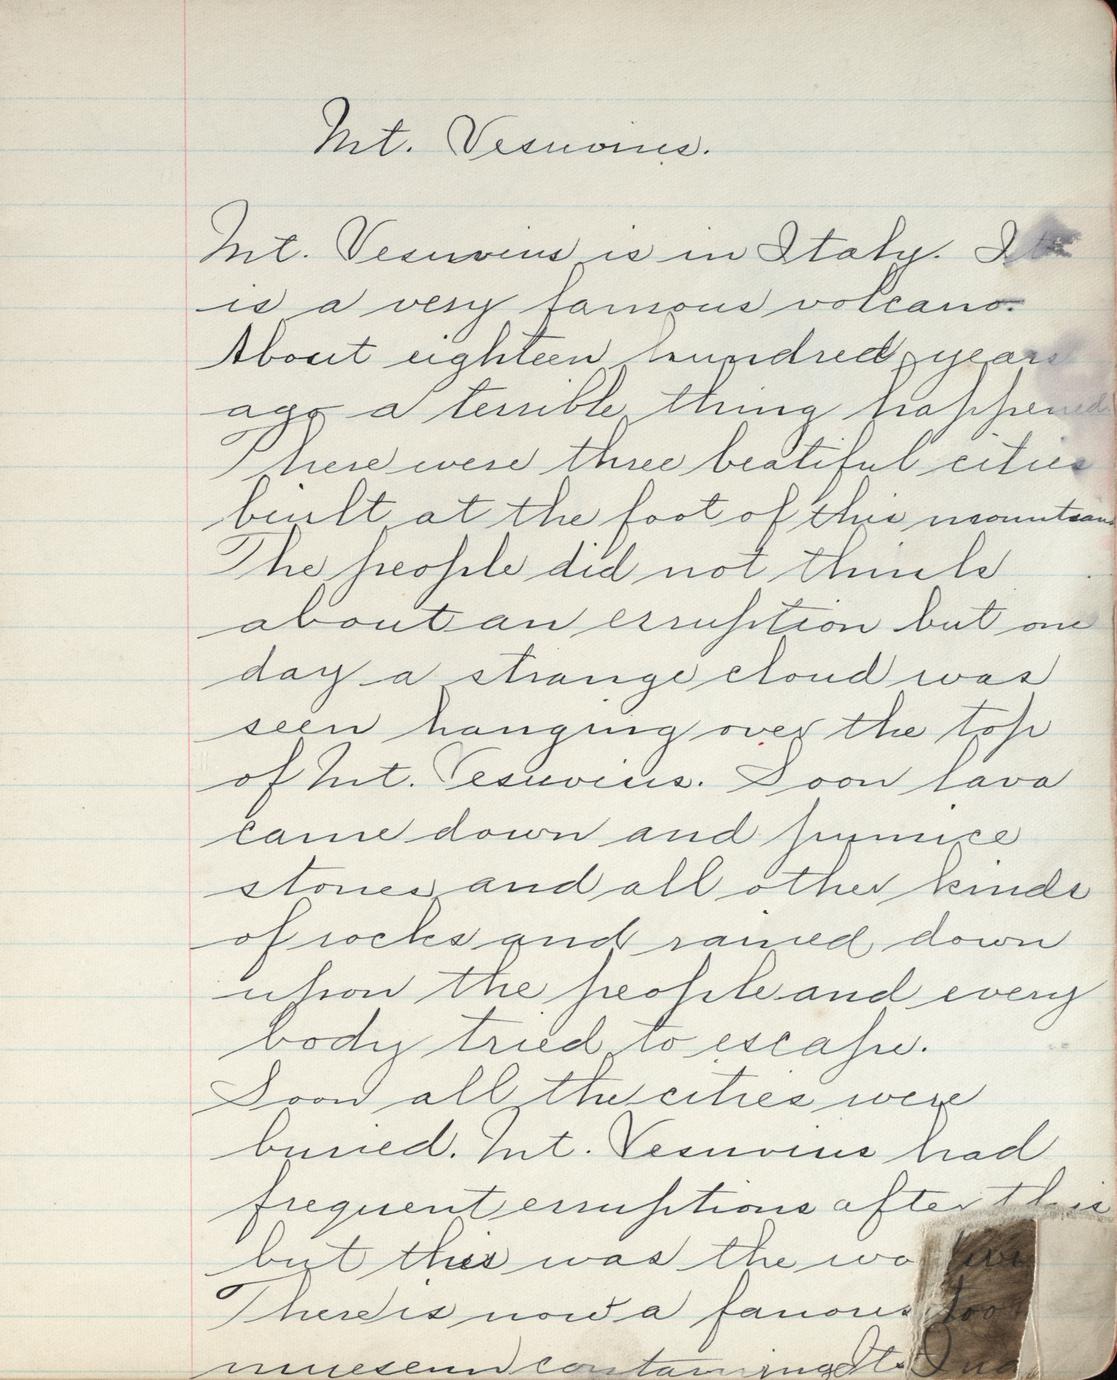 Mt. Vesuvius.
Mt. Vesuvius is in Italy. It
is a very famous volcano.
About eighteen hundred years
ago a terrible thing happened
There were three beatiful cities
built at the foot of this mountain
The people did not think
about an erruption but one
day a strange cloud was
seen hanging over the top
of Mt. Vesuvius. Soon lava
came down and pumice
stones and all other kinds
of rocks and rained down
upon the people and every
body tried to escape.
Soon all the cities were
buried. Mt. Vesuvius had
frequent erruptions after this
but this was the
There is now a famous
museum containing